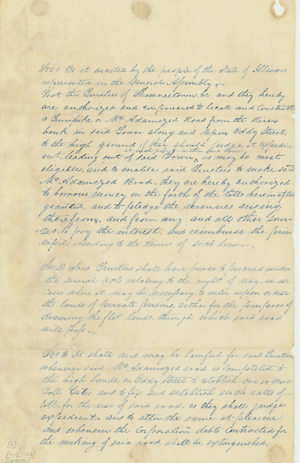 Sec 1 Be it enacted by the people of the State of Illinois
represented in the General Assembly.
That the Trustees of Shawneetown be and they hereby
are authorized and empowered to locate and construct
a Turnpike or McAdamized Road from the River
bank in said Town along and upon Eddy Street,
to the high ground if they should judge it expedi-
ent leading out of said Town, as may be most
eligible, and to enable said Trustees to make said
McAdamized Road, they are hereby authorized
to borrow money on the faith of the tolls hereinafter
granted and to pledge the revenues arising
therefrom, and from any and all other sour-
ces, to pay the interest, and reimburse the prin-
cipal according to the terms of such loan.
Sec 2 Said Trustees shall have power to proceed under
the several acts relating to the right of way, in all
cases where it may be necessary to enter upon or use
the lands of private persons, either for the purpose of
draining the flat lands through which said road
will pass.
Sec 3 It shall and may be lawful for said Trustees
whenever said McAdamized road is completed to
the high lands, on Eddy Street to establish one or more
Toll Gates and to fix and establish such rates of
toll for the use of said road, as they shall judge
expedient, and to alter the same at pleasure
and whenever the Corporation debts contracted for
the making of said road shall be extinguished